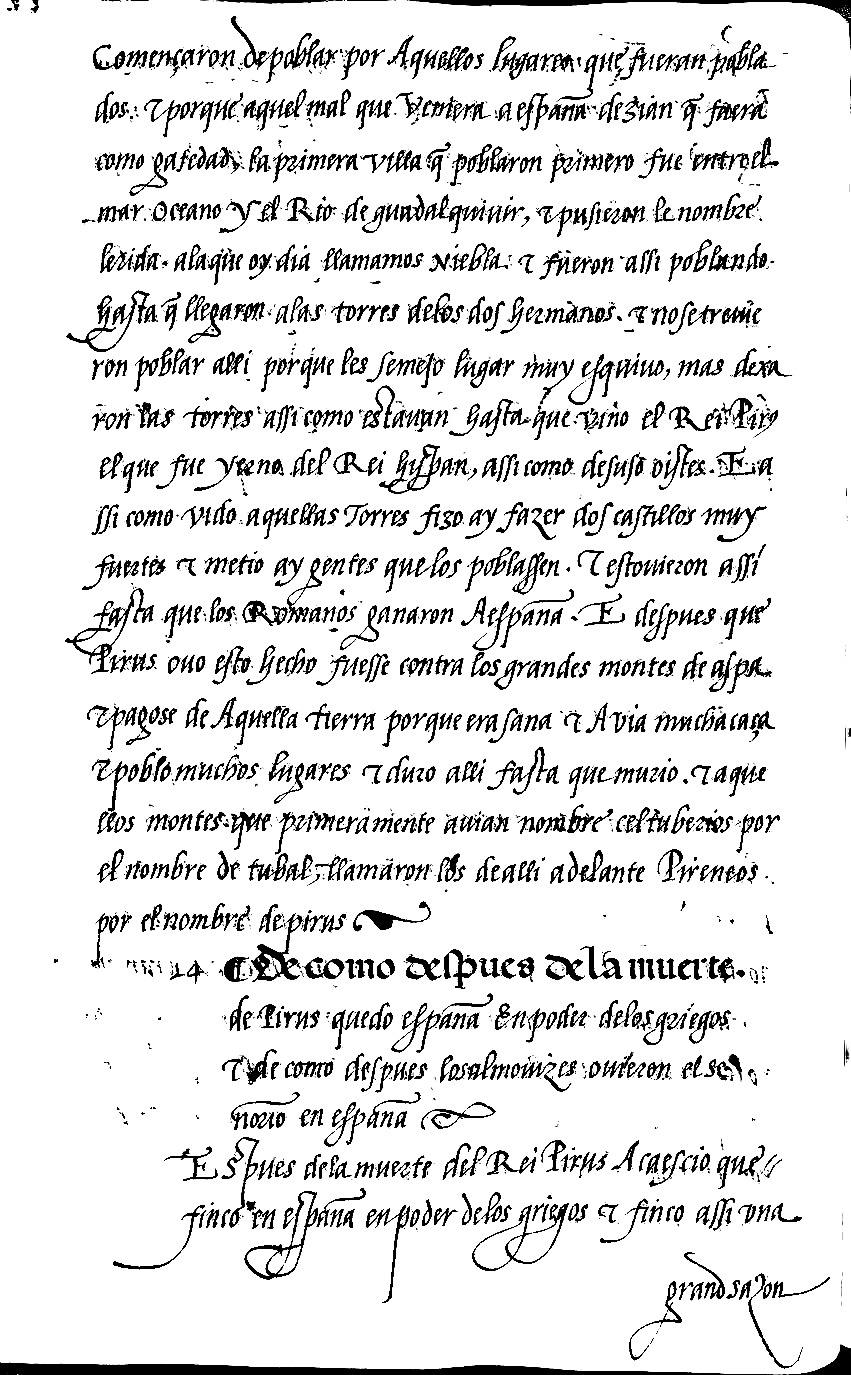 Començaron de poblar por Aquellos lugares que fueran pobla
dos. & porque aquel mal que Veniera a españa dezian q̃ fuera
como gafedad, la primera villa q̃ poblaron primero fue entre el
mar Oceano y el Rio de guadalquiuir, & pusieron le nombre
lerida. ala que oy dia llamamos Niebla & fueron assi poblando
hasta q̃ llegaron alas torres delos dos hermanos. & no se treuie
ron poblar alli porque les semejo lugar muy esquiuo, mas dexa
ron las torres assi como estauan hasta que vino el Rei Pirus
el que fue yerno del Rei hispan, assi como desuso oistes. E a
ssi como vido aquellas Torres fizo ay fazer dos castillos muy
fuertes & metio ay gentes que los poblassen. & estouieron assi
fasta que los Romanos ganaron A españa. E despues que
Pirus ouo esto hecho fuesse contra los grandes montes de aspa
& pagose de Aquella tierra porque era sana & Auia mucha caça
& poblo muchos lugares & duro alli fasta que murio. & aque
llos montes que primeramente auian nombre celtuberios por
el nombre de tubal, llamaron los de alli adelante Pireneos
por el nombre de pirus
14 ¶ De como despues de la muerte.
de Pirus quedo españa En poder delos griegos
& de como despues los almonizes ouieron el se
norio en españa
Espues dela muerte del Rei Pirus Acaescio que
finco en españa en poder delos griegos & finco assi vna
grand sazon